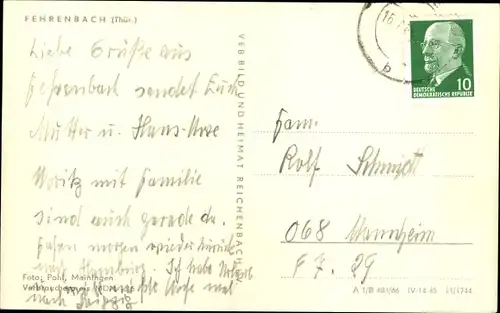 FEHRENBACH (Thür.)
Liebe Grüße aus
Fehrenbach sendet Euch
Mutter u. Hans-Uwe
Moritz mit Familie
sind auch gerade da.
fahren morgen wieder zurück
nach Hamburg. Ich habe Urlaub
Foto: Pohl, Meiningen
nach Leipzig
VEB BILD UND HEIMAT REICHENBACH
16
b
10
DEUTSCHE
DEMOKRATISCHE REPUBLIK
Fam.
Rolf Schmidt
068 Mannheim
F 7. 29
A 1/B 484/66 IV-14-45